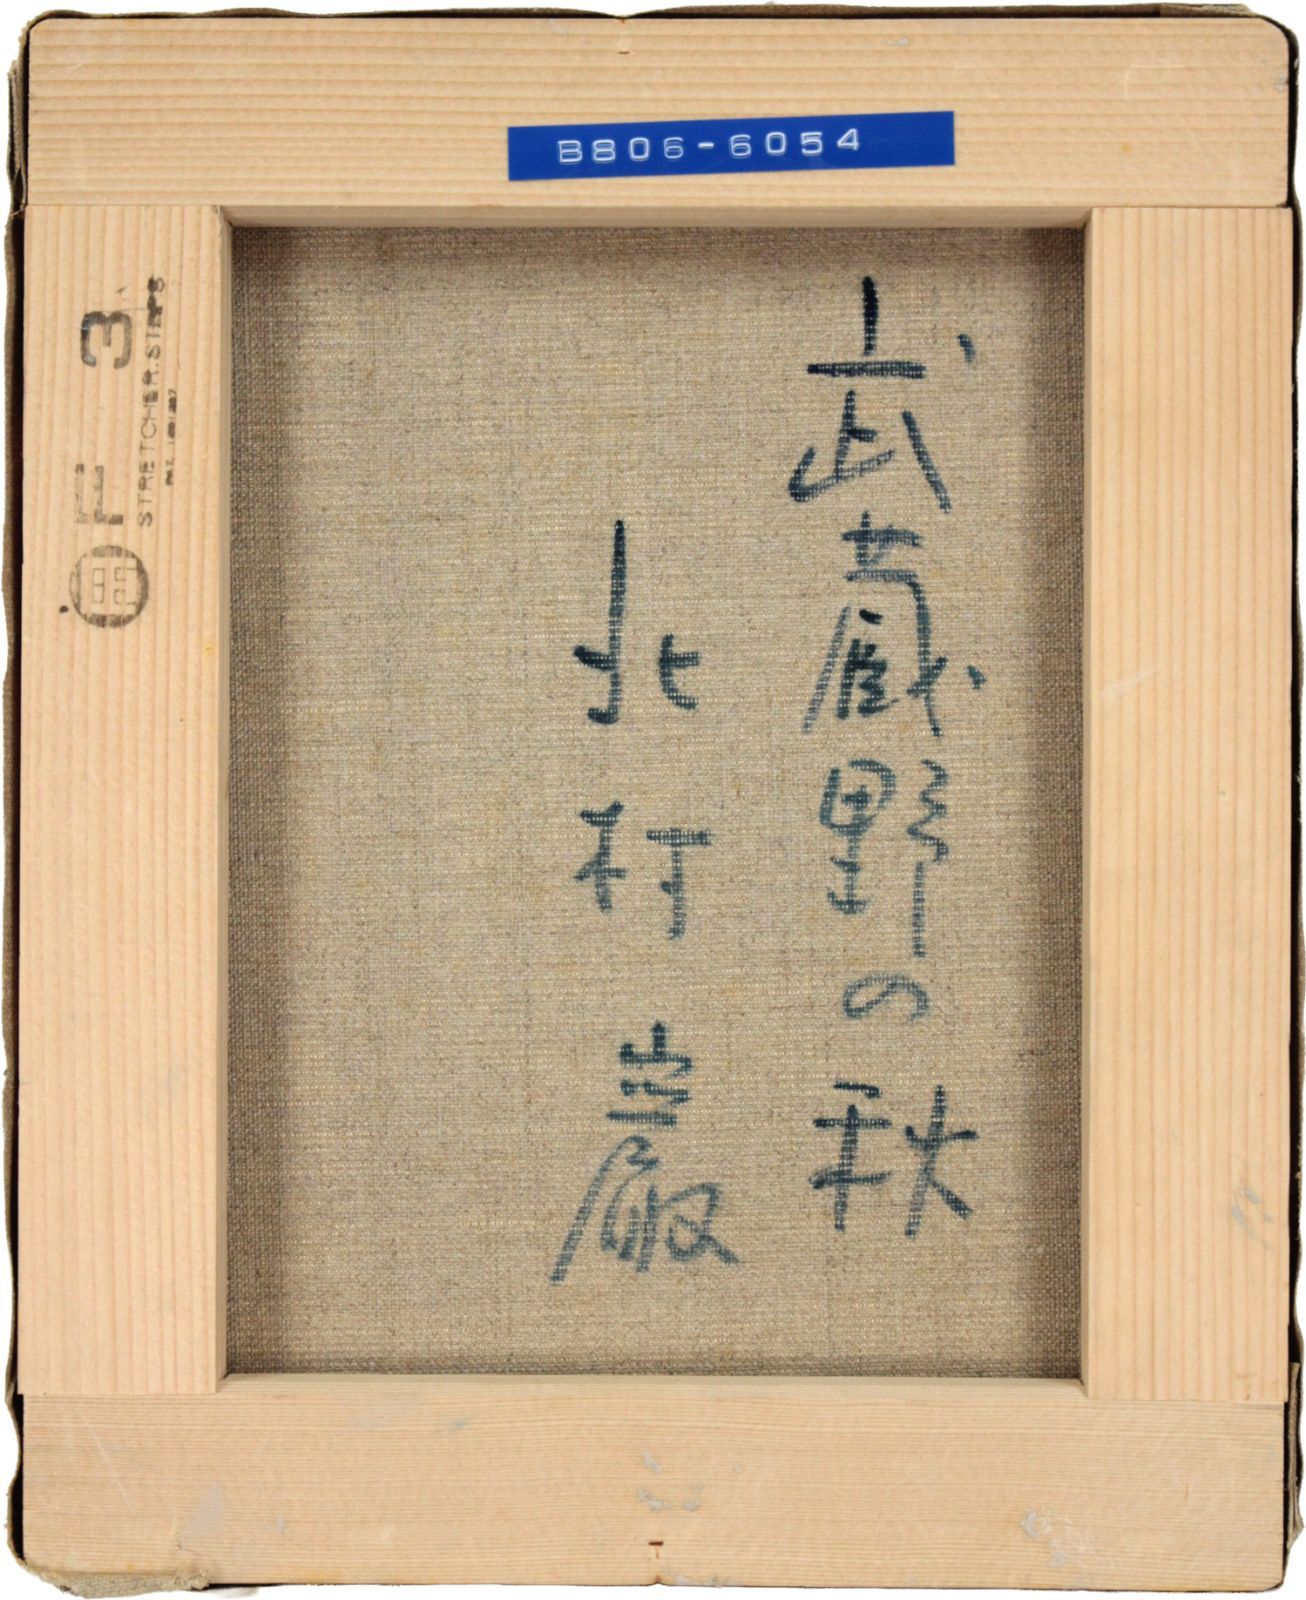 B806-6054
武蔵野の秋
北村巌
F 3
STRETCHER.STRIPS